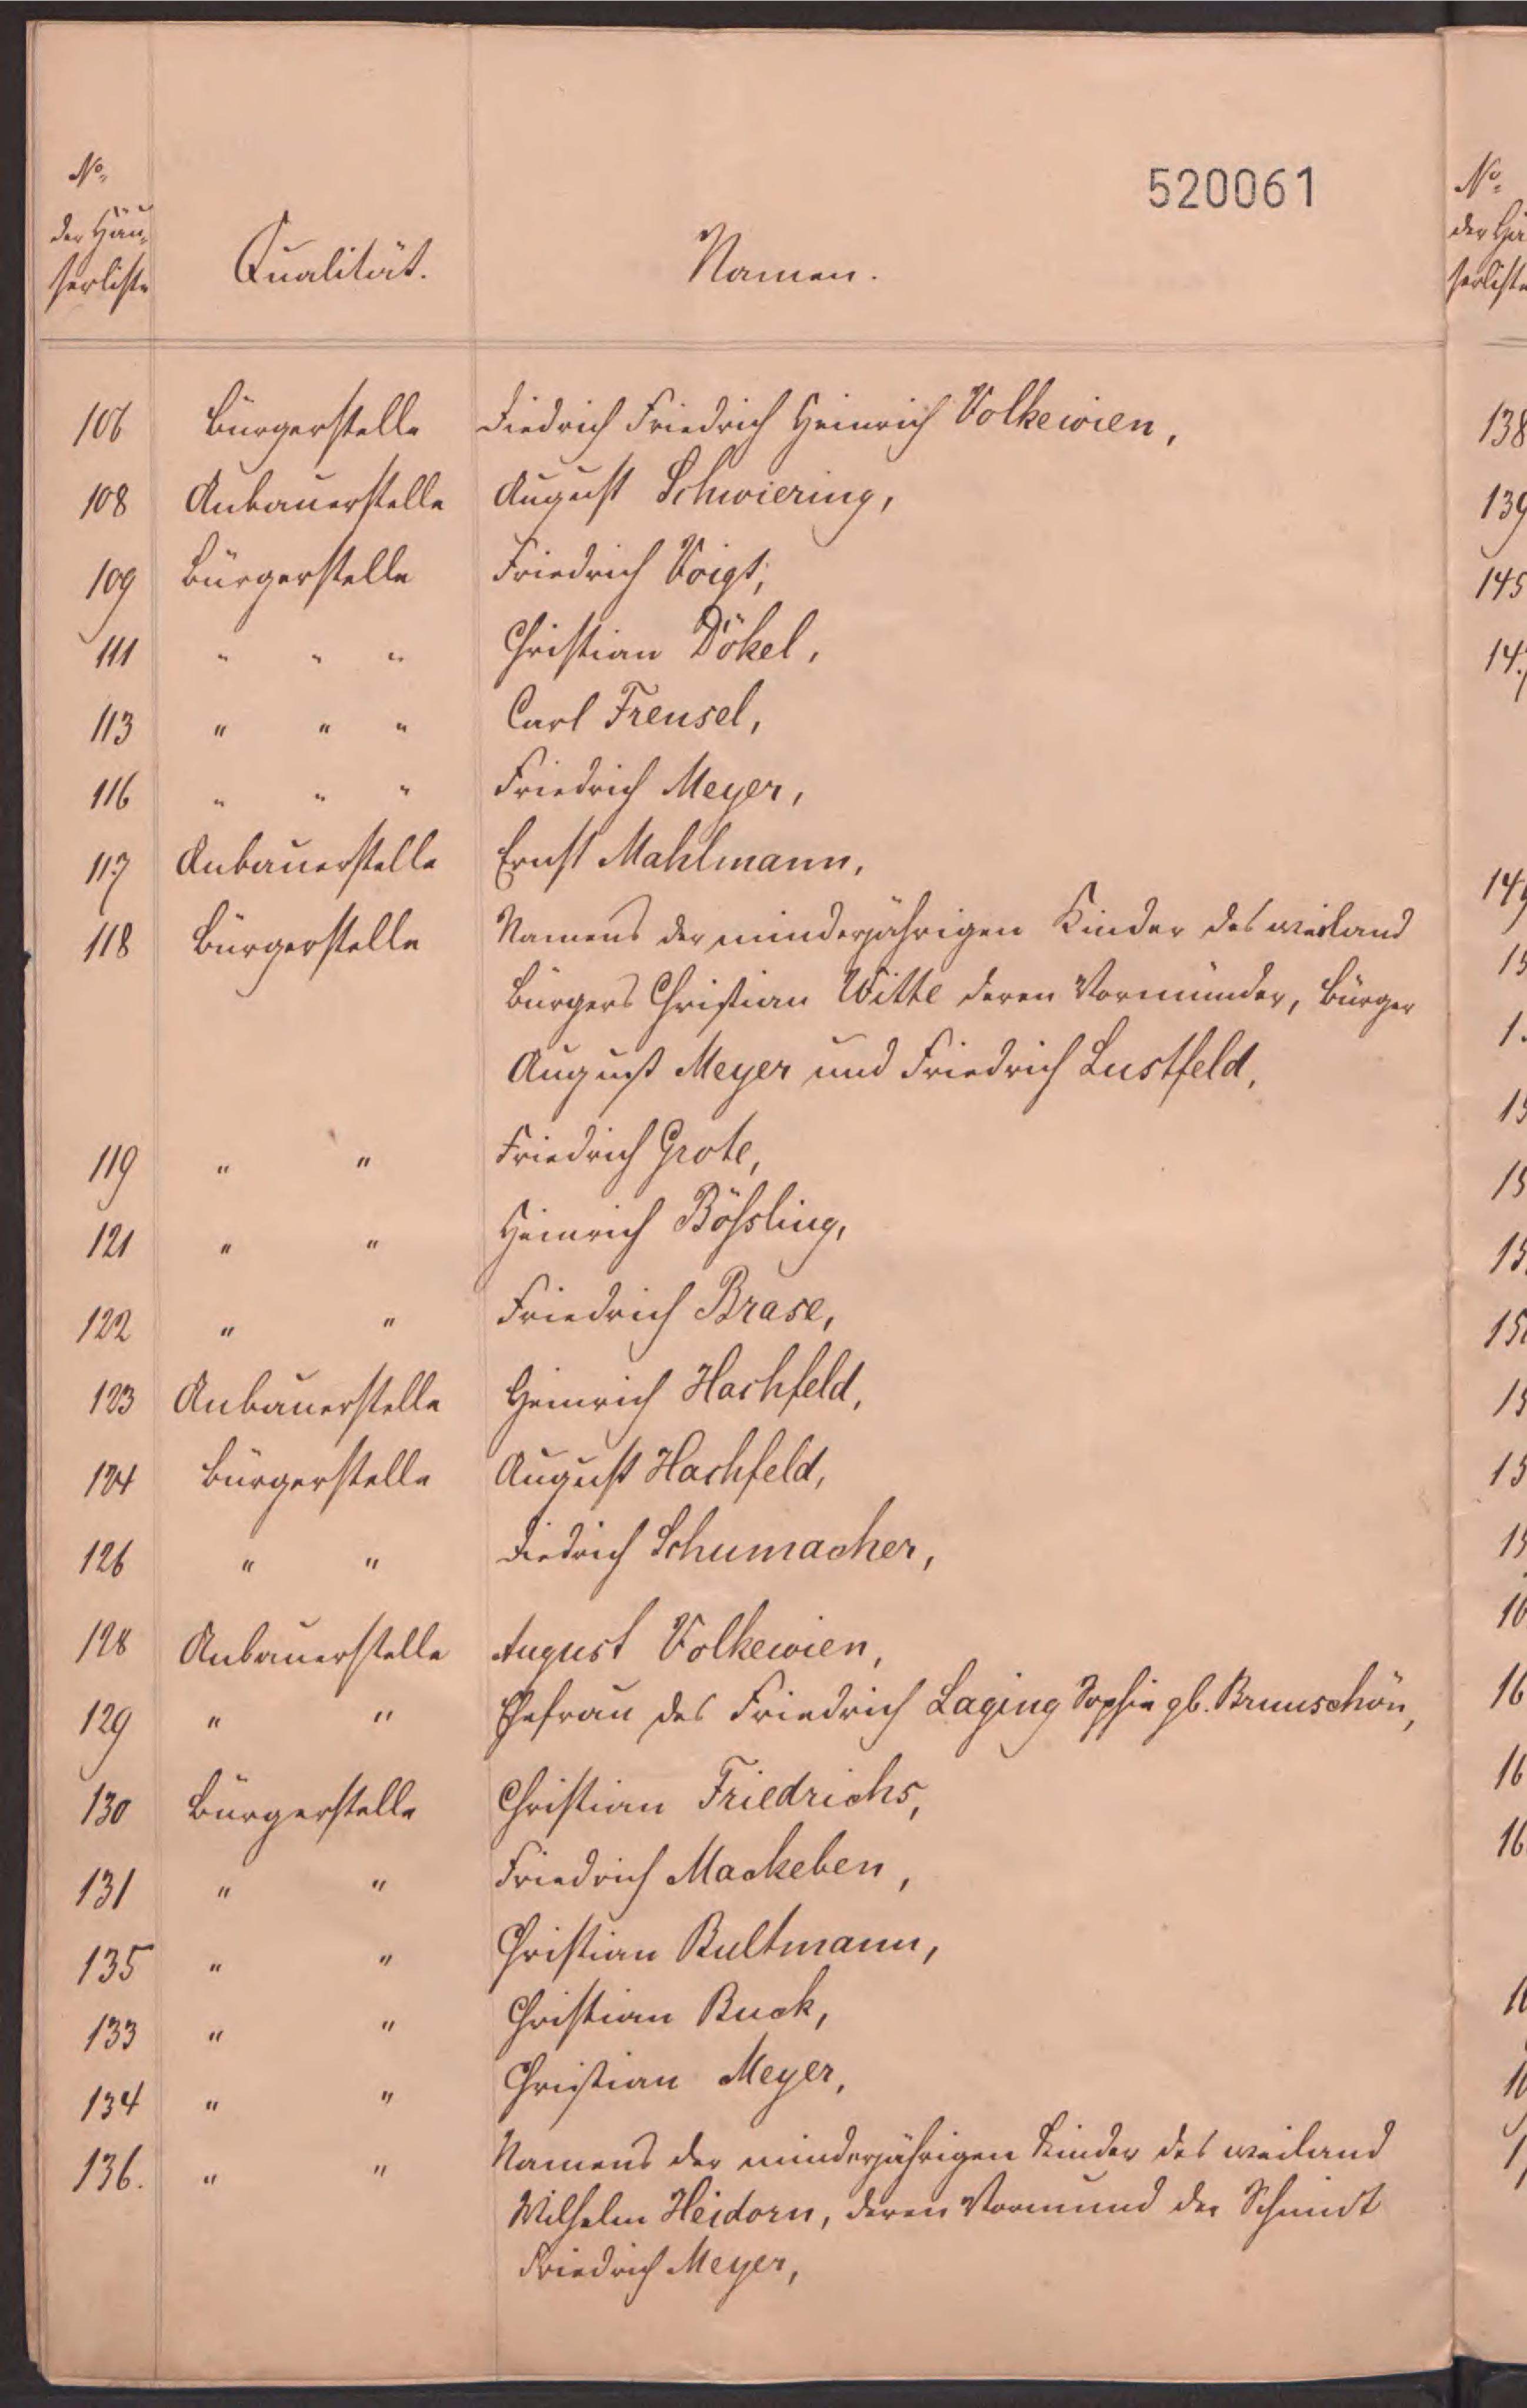 520061
No. der Häu= serliste Qualität. Namen.
106 Bürgerstelle Diedrich Friedrich Heinrich Volkewien,
108 Anbauerstelle August Schwiering,
109 Bürgerstelle Friedrich Voigt,
111 " " " Christian Dökel,
113 " " " Carl Frensel,
116 " " " Friedrich Meyer,
117 Anbauerstelle Ernst Mahlmann,
118 Bürgerstelle Namens der minderjährigen Kinder des weiland
Bürgers Christian Witte deren Vormünder, Bürger
August Meyer und Friedrich Lustfeld,
119 " " Friedrich Grote,
121 " " Heinrich Bößling,
122 " " Friedrich Brase,
123 Anbauerstelle Heinrich Hachfeld,
124 Bürgerstelle August Hachfeld,
126 " " Diedrich Schumacher,
128 Anbauerstelle August Volkewien,
129 " " Ehefrau des Friedrich Laging Sophie gb. Brunschön,
130 Bürgerstelle Christian Friedrichs,
131 " " Friedrich Mackeben,
135 " " Christian Bultmann,
133 " " Christian Buck,
134 " " Christian Meyer,
136. " " Namens der minderjährigen Kinder des weiland
Wilhelm Heidorn, deren Vormund der Schmidt
Friedrich Meyer,
No.
der Hä
serliste
138
139
145